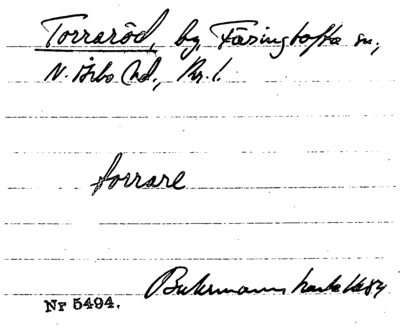 Torraröd, by, Färingtofta sn,
N. Åsbo hd., Kr. l.
torrare
Buhrmanns karta 1684
Nr 5494.